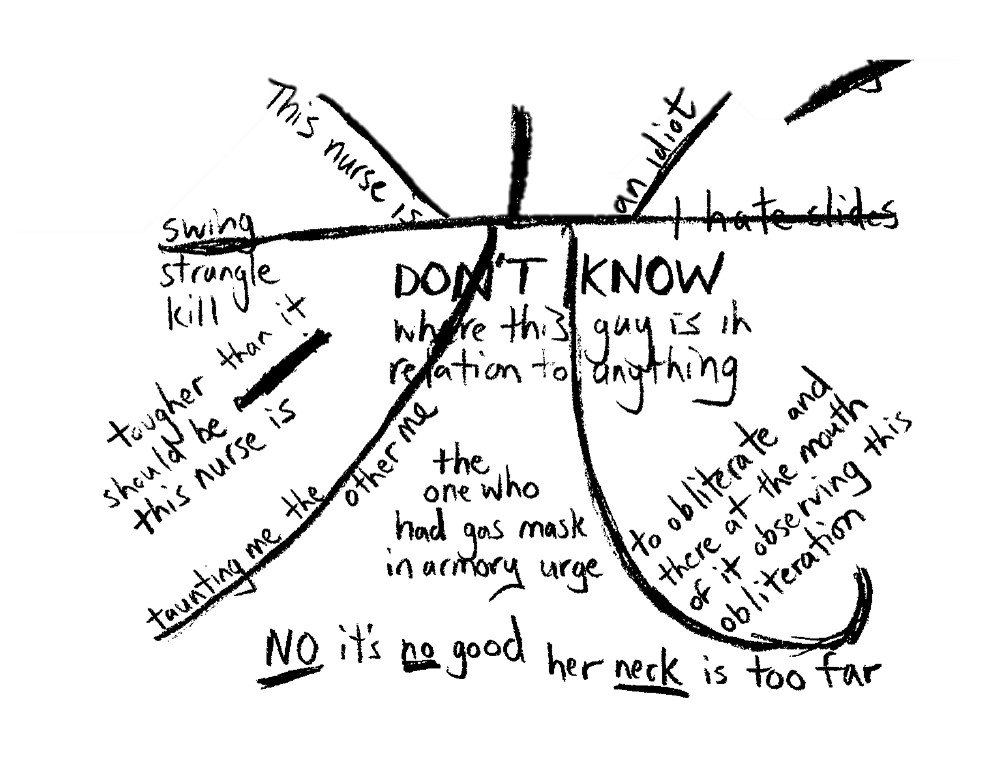 This nurse is
an idiot
I hate slides
swing
strangle
kill
DON'T KNOW
where this guy is in
relation to anything
tougher than it
should be
this nurse is
taunting me the other me
the
one who
had gas mask
in armory urge
to obliterate and
there at the mouth
of it observing this
obliteration
NO it's no good her neck is too far